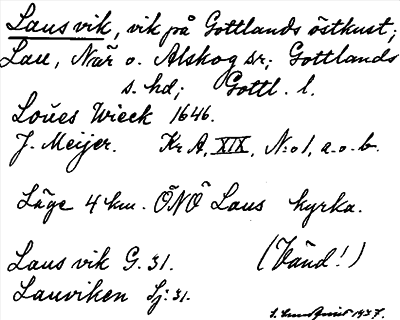 Laus vik, vik på Gottlands östkust;
Lau, När o. Alskog sr; Gottlands
s. hd; Gottl. l.
Loües Wieck 1646.
J. Meijer. Kr A, XIX, N:o 1, a.o.b.
Läge 4 km. ÖNÖ Laus kyrka.
Laus vik G. 31. (Vänd!)
Lauviken Sj: 31.
1937.